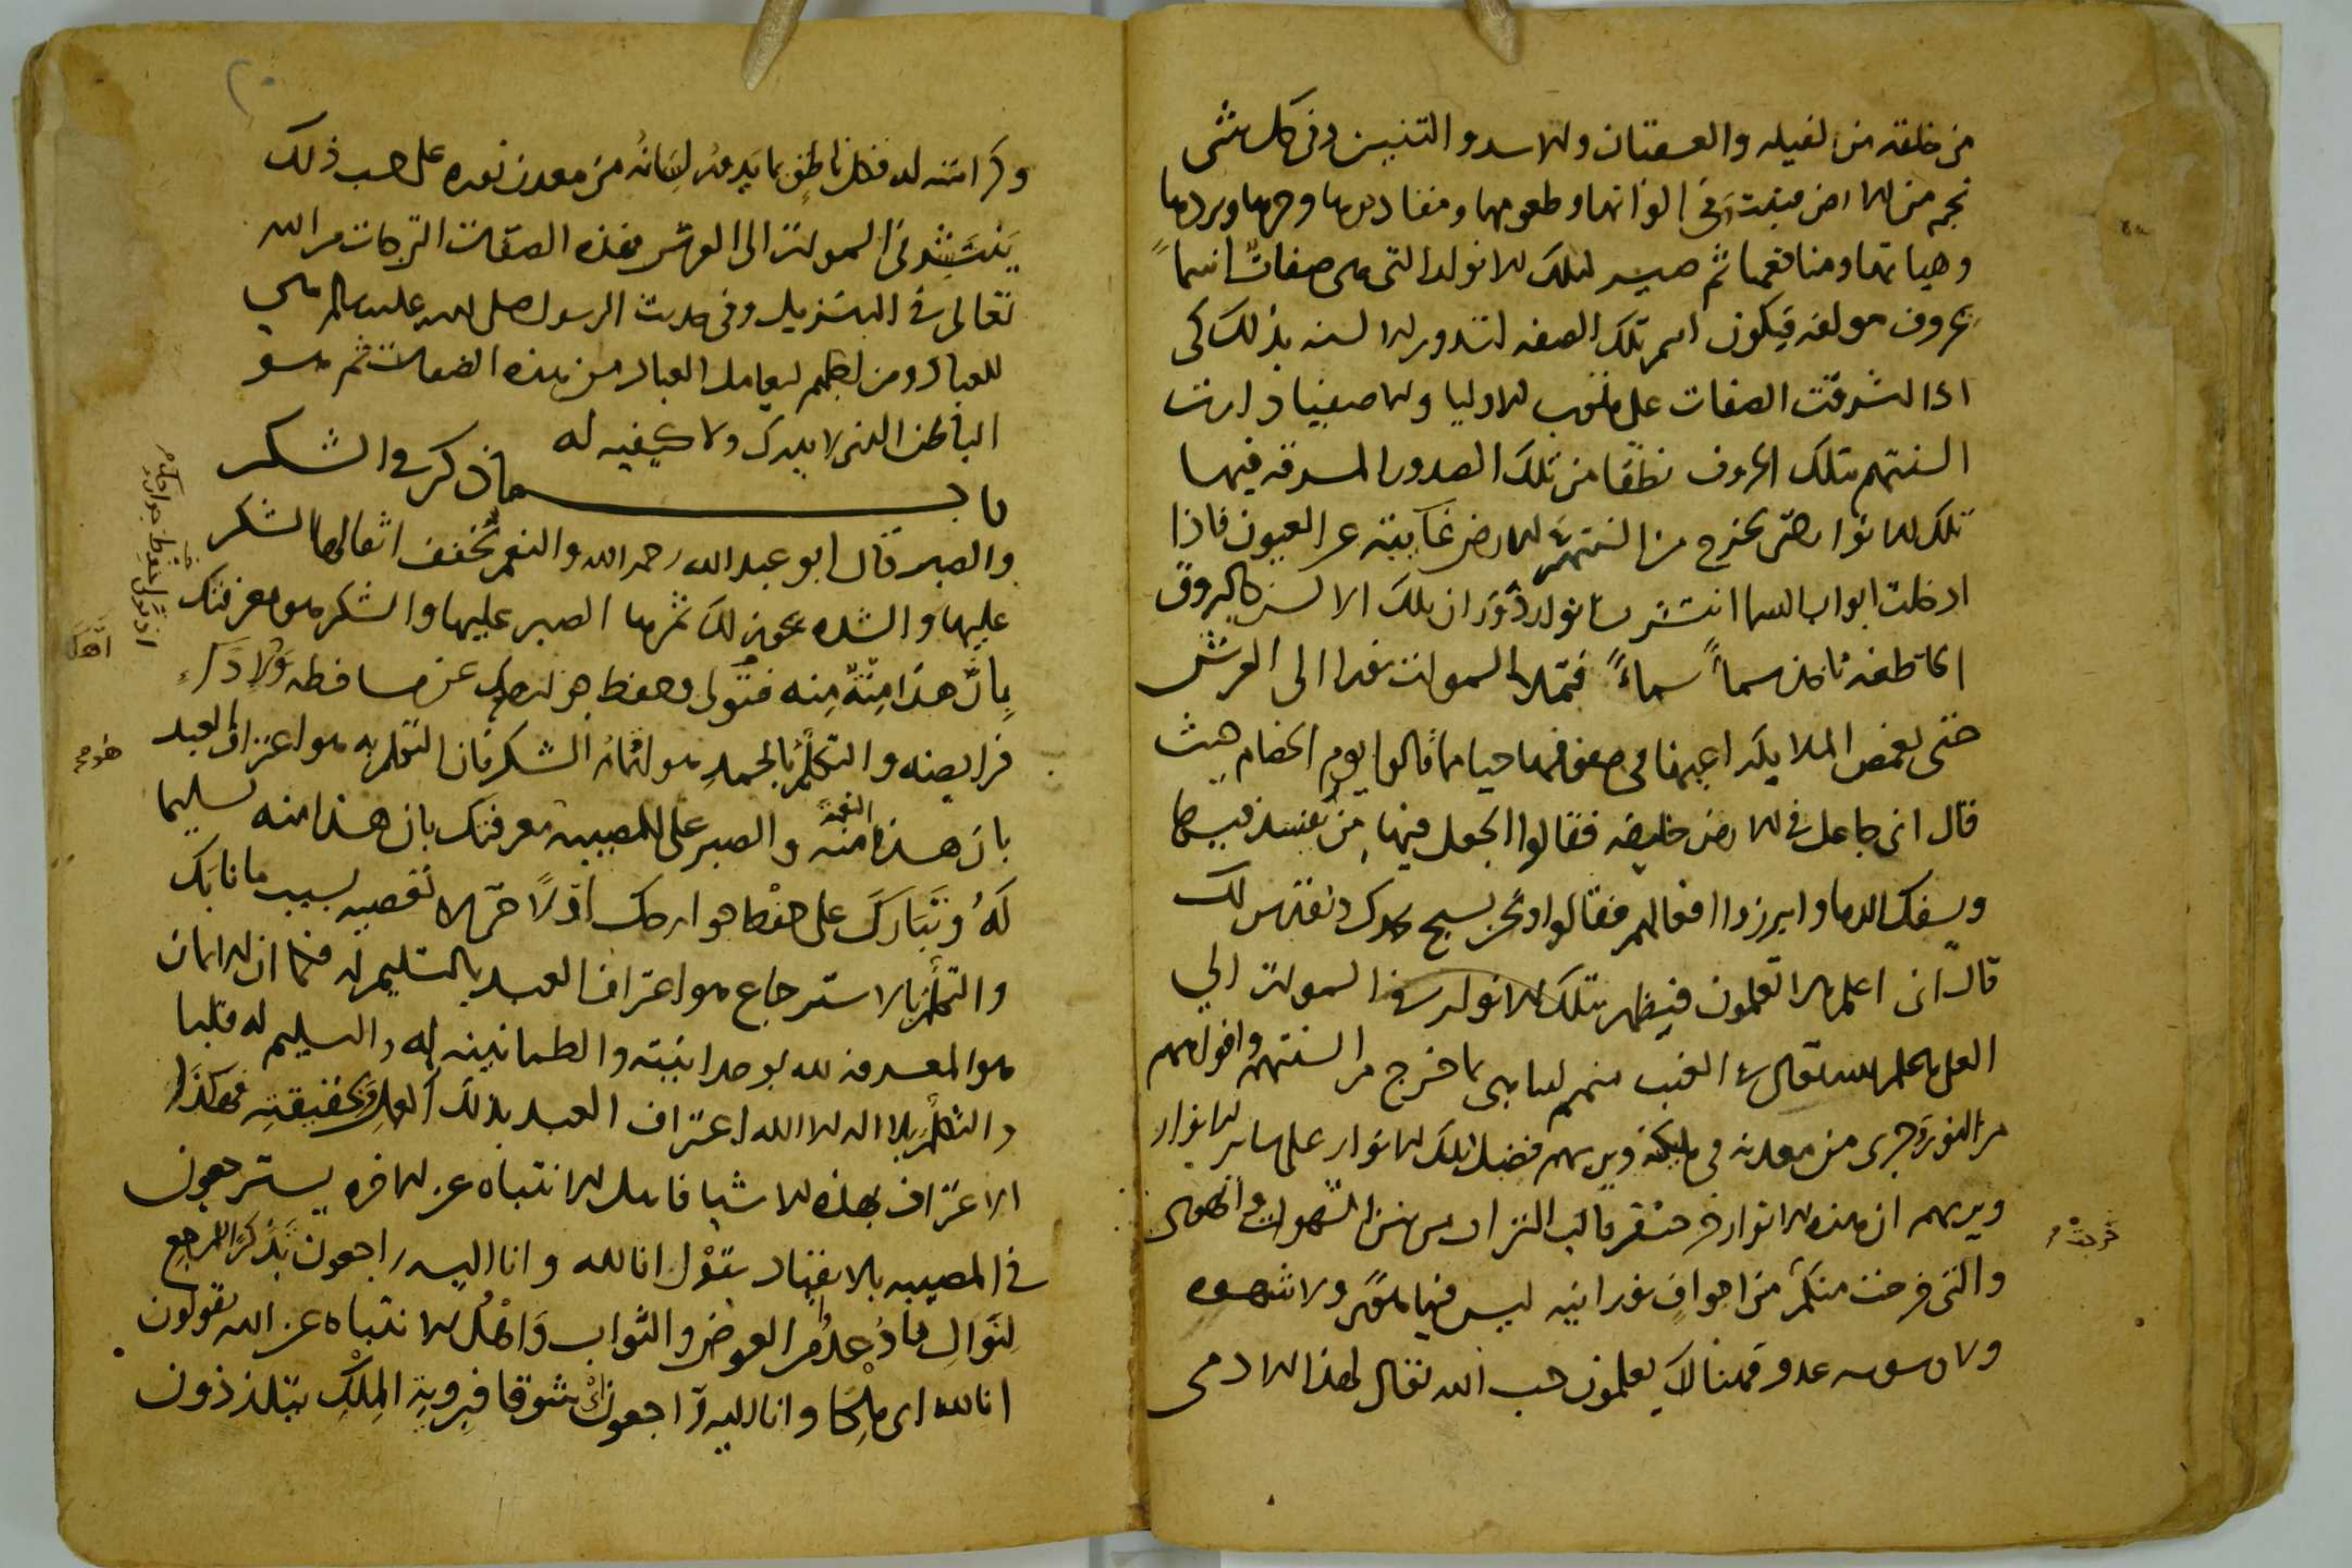 من خلقه من الفيله والعقبان والاسد والتنين وفى كل شى
نجم من الارض فينبت فى الوانها وطعومها ومقاديرها وحرها وبردها
وهياتها ومنافعها ثم صير لتلك الانوار التى هى صفات اسما
بحروف مولفه فيكون اسم تلك الصفه لتدور الالسنه بذلك كى
اذا اشرقت الصفات على قلوب الاوليا والاصفيا دارت
السنتهم بتلك الحروف نطقا من تلك الصدور المشرقه فيها
تلك الانوار حتى يخرج من السنتهم الارض غايبة عن العيون فاذا
ادخلت ابواب السما انتشرت انوار دوران تلك الالسن كالبروق
الخاطفه تاخذ سماً سماءً فتملا السموات نورا الى العرش
حتى يغمض الملايكه اعينها فى صفوفها حيا مما قالوا يوم الخصام حيث
قال انى جاعل فى الارض خليفه فقالوا اتجعل فيها من يفسد فيها
ويسفك الدما وابرزوا افعالهم فقالوا ونحن نسبح بحمدك ونقدس لك
قال انى اعلم ما لا تعلمون فيظهر بتلك الانوار فى السموات الى
العلى علم الله تعالى فى الغيب منهم لما بما خرج من السنتهم وافواههم
من النور وجرى من معدنه فى ويريهم فضل تلك الانوار على ساير الانوار
ويريهم ان هذه الانوار خرجت من قالب التراب من بين الشهوات والهوى
خرجت
والتى خرجت منكم من اجواف نورانيه ليس فيها هوى ولا شهوه
ولا وسوسه عدو فهنالك يعلمون حب الله تعالى لهذا الادمى
وكرامته له فكل ناطق بما يدور لسانه من معدن نوره على حسب ذلك
ينتشر فى السموات الى العرش فهذه الصفات التى جات من الله
تعالى فى التنزيل وفى حديث الرسول صلى الله عليه وسلم هى
للعباد ومن اجلهم ليعامل العباد من هذه الصفات ثم هو
الباطن الذى لا يدرك ولا كيفيه له
باب ما ذكر فى الشكر
والصبر قال ابو عبد الله رحمه الله والنعم تخفف اثقالها الشكر
عليها والشده يهون لك ثمرها الصبر عليها والشكر هو معرفتك
بانّ هذا مِنّة منه فتولى وحفظ جوارحك عن مساخطه ولاداء
فرايضه والتكلم بالحمد هو اتمام الشكر فان التكلم به هو اعتراف العبد
بان هذه النعمة منه والصبر على المصيبه معرفتك بان هذا منه تسليما
لهُ وتبارك على حفظ جوارحك اوّلاً حتى لا تعصيه لسبب ما نابك
والتكلم بالاسترجاع هو اعتراف العبد بالتسليم له فكما ان الايمان
هو المعرفه لله بوحدانيته والطمانينه له والتسليم له قلبا
والتكلم بلا اله الا الله اعتراف العبد بذلك القول وبحقيقته فهكذا
الاعتراف بهذه الاشيا فاهل الانتباه عن الاخره يسترجعون
فى المصيبه بالانقياد بقول انا لله وانا اليه راجعون تذكرا المرجع
لنوال ما وعد من العوض والثواب وَاهل الانتباه عن الله يقولون
انا لله اى ملكا وانا اليه راجعون شوقا فبروية المِلْك يتلذذون